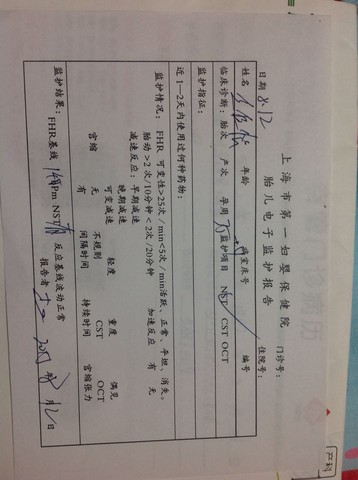 产科
上海市第一妇婴保健院 门诊号:
胎儿电子监护报告 住院号:
日期 8.12
姓名 年龄 病室床号 编号
临床诊断: 胎次 产次 孕周 监护项目 NST CST OCT
监护指征:
近1—2天内使用过何种药物:
监护情况: FHR 可变性>25次/min<5次/min活跃、正常、平担、消失。
胎动>2次/10分钟<2次/20分钟 加速反应: 有 无
减速反应: 早期减速 轻度 重度 偶见
晚期减速
可变减速
宫缩 无 不规则 CST OCT
有 间隔时间 持续时间 宫缩张力
监护结果: FHR基线 bPm NST 反应基线波动正常
报告者 8月12日